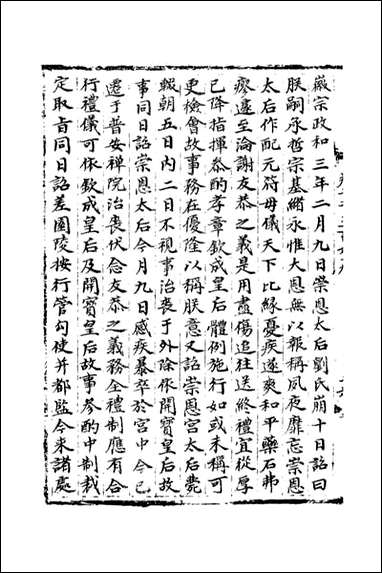 徽宗政和三年二月九日崇恩太后劉氏崩十日詔曰
朕嗣承哲宗基緒永惟大恩無以報稱夙夜靡忘崇恩
太后作配元符母儀天下比縁憂疾遂爽和平藥石弗
瘳遽至淪謝友恭之義是用盡傷追往送終禮宜從厚
已降指揮叅酌孝章欽成皇后體例施行如或未稱可
更檢會故事務在優隆以稱朕意又詔崇恩宮太后薨
輟朝五日内二日不視事治喪于外除依開寳皇后故
事同日詔崇恩太后今月九日感疾暴卒於宮中今已
遷于普安禪院治喪伏念友恭之義務全禮制應有合
行禮儀可依欽成皇后及開寳皇后故事參酌中制裁
定取㫖同日詔差園陵按行管勾使并都監令来諸處